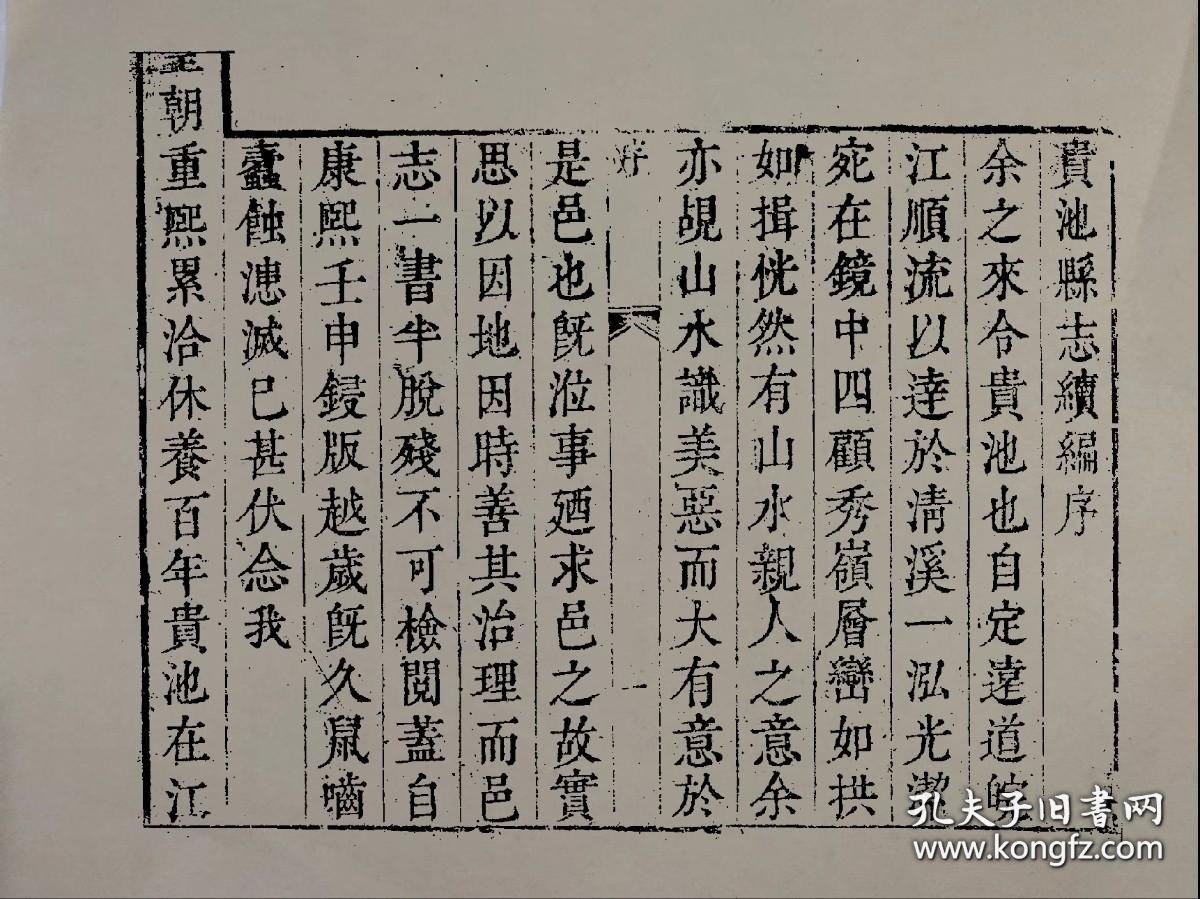 貴池縣志續編序
余之來令貴池也自定遠道皖
江順流以達於清溪一泓光潔
宛在鏡中四顧秀嶺層巒如拱
如揖恍然有山水親人之意余
亦覘山水識美惡而大有意於
序
一
是邑也旣涖事廼求邑之故實
思以因地因時善其治理而邑
志一書半脫殘不可檢閱蓋自
康熙壬申鋟版越歲旣久鼠嚙
蠹蝕漶滅已甚伏念我
朝重熈累洽休養百年貴池在江
孔夫子旧書网
www.kongfz.com